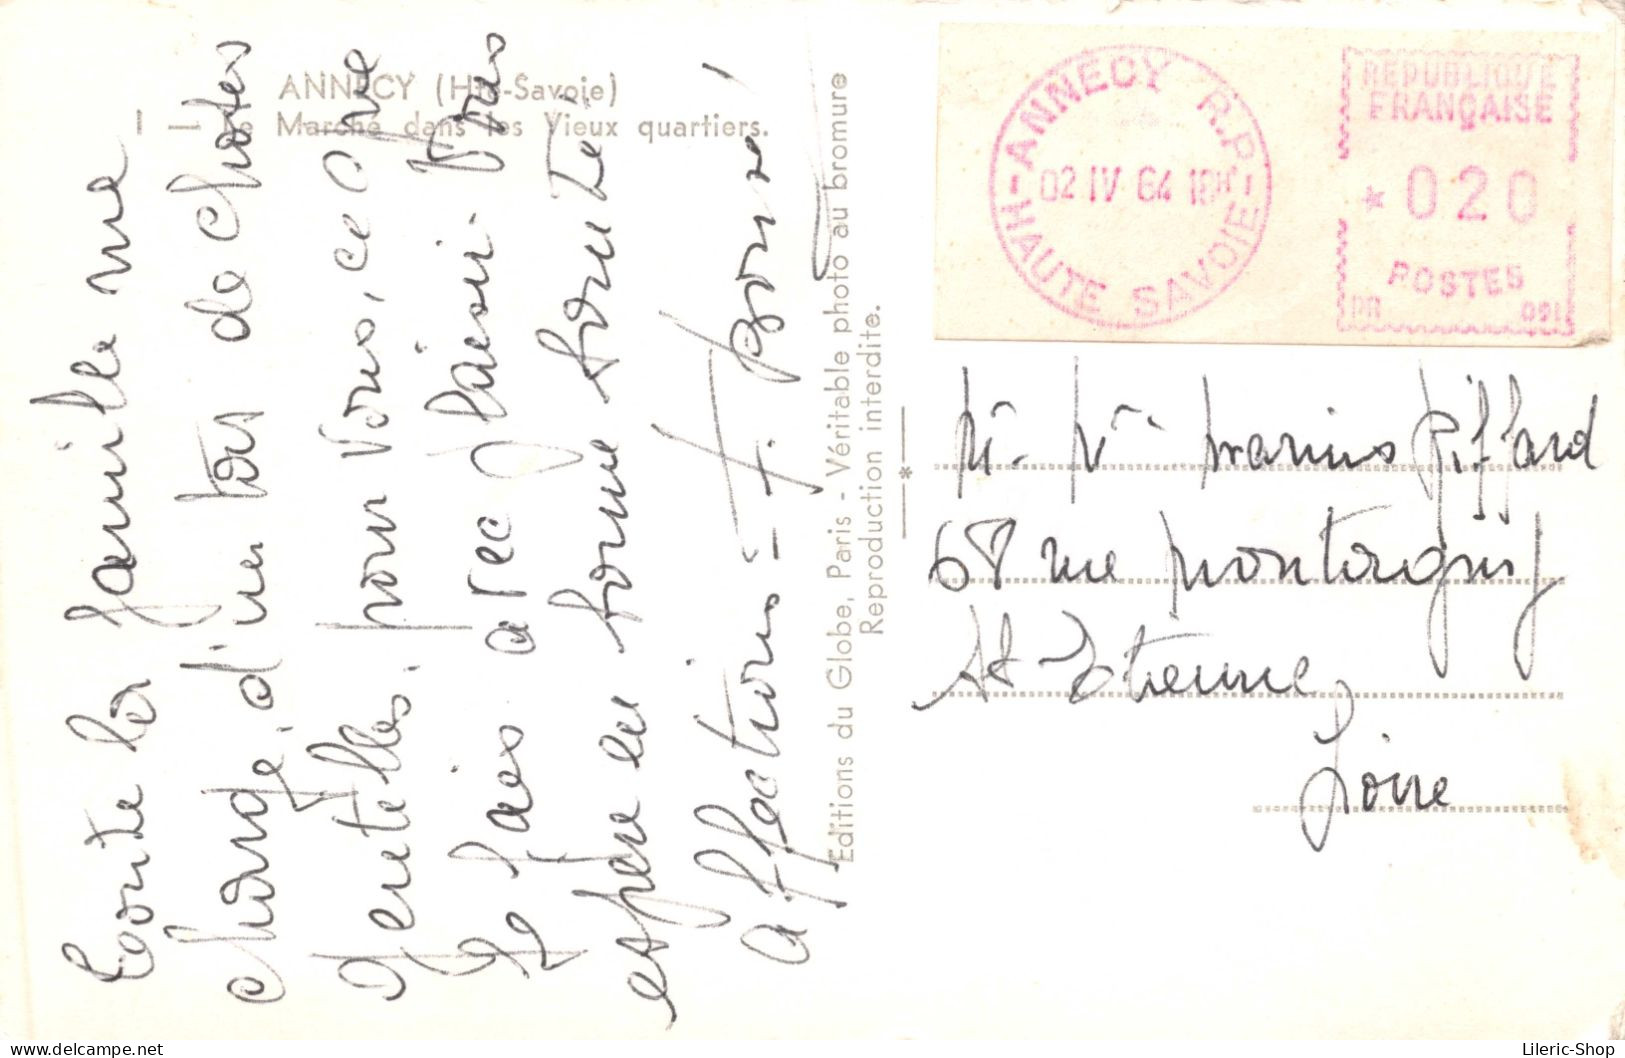 ANNECY (Hte-Savoie)
Le Marché dans les Vieux quartiers.
Toute la famille me
charge, d'un tas de choses
Gentilles, pour Vous, ce que
Je fais avec plaisir. Vous
espère en bonne santé,
affections - F. Bonne
Editions du Globe, Paris - Véritable photo au bromure
Reproduction interdite.
ANNECY R.P.
02 IV 64 18H
HAUTE SAVOIE
REPUBLIQUE
FRANÇAISE
* 020
POSTES
PR 091
Me Ve Marius Riffard
68 rue Montagny
St Etienne
Loire
Lileric-Shop